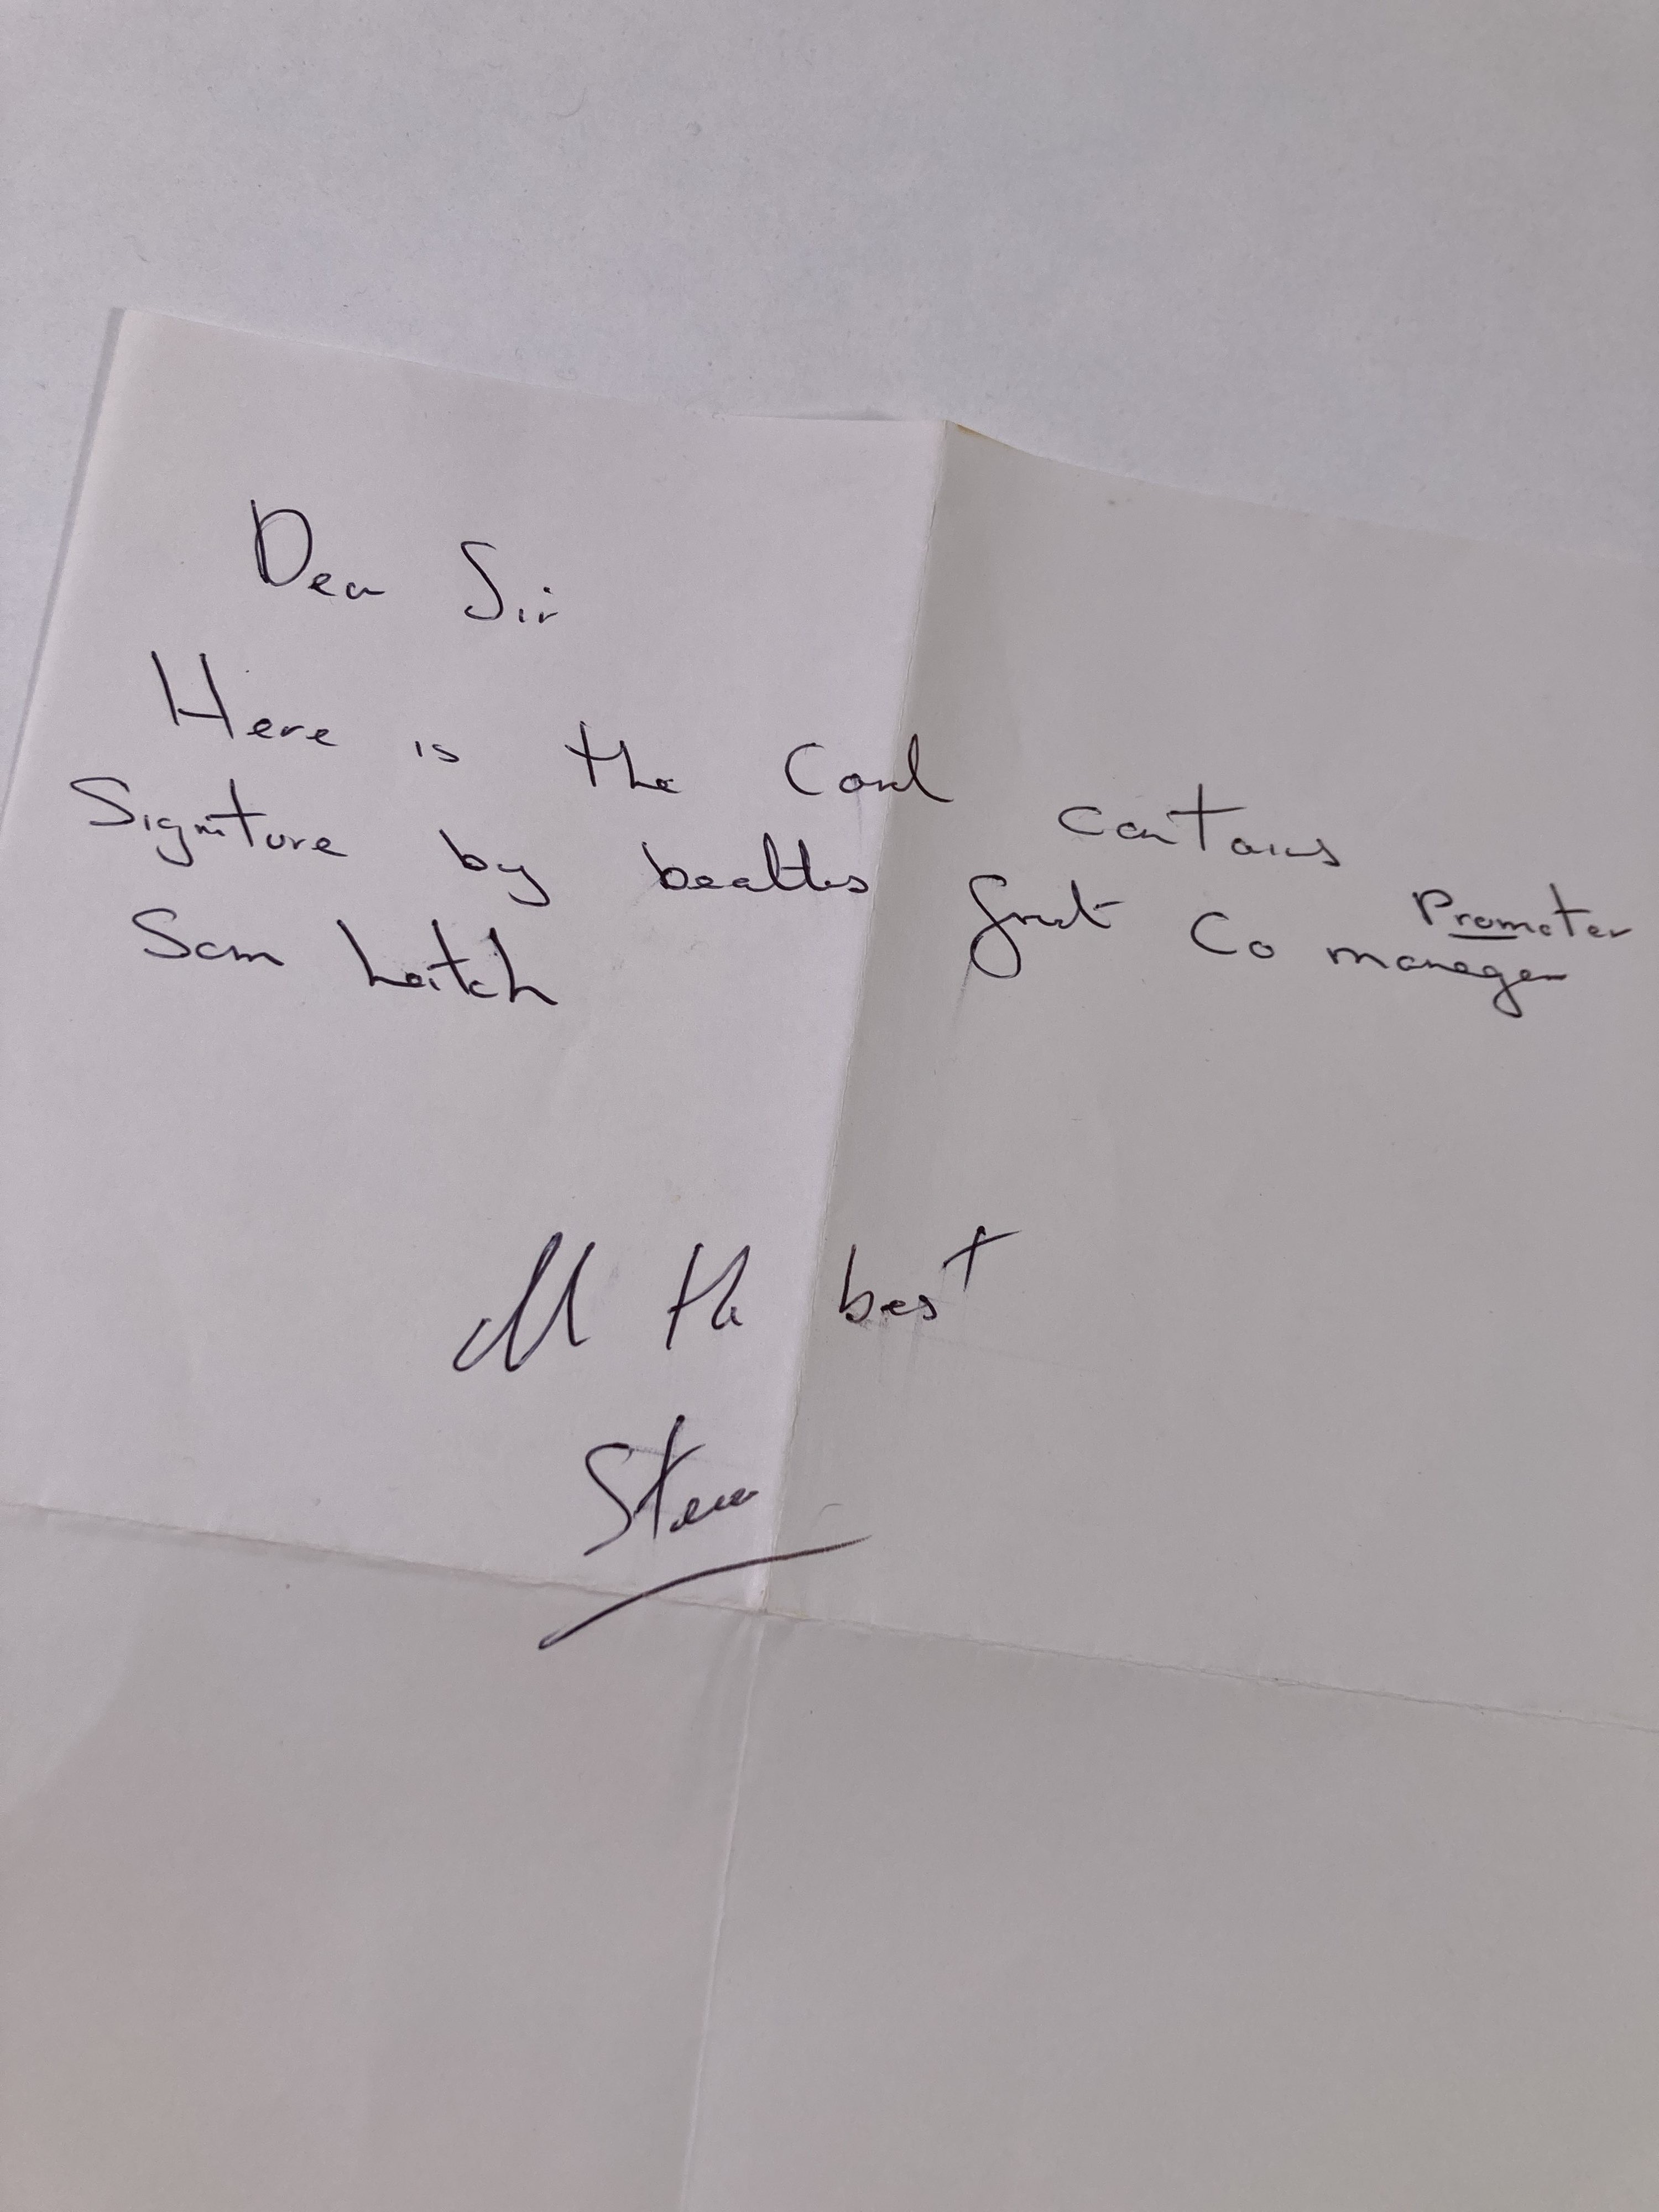 Dear Sir
Here is the Card contains
Signiture by bealtles first Co manager Promoter
Sam Leitch
All the best
Steve